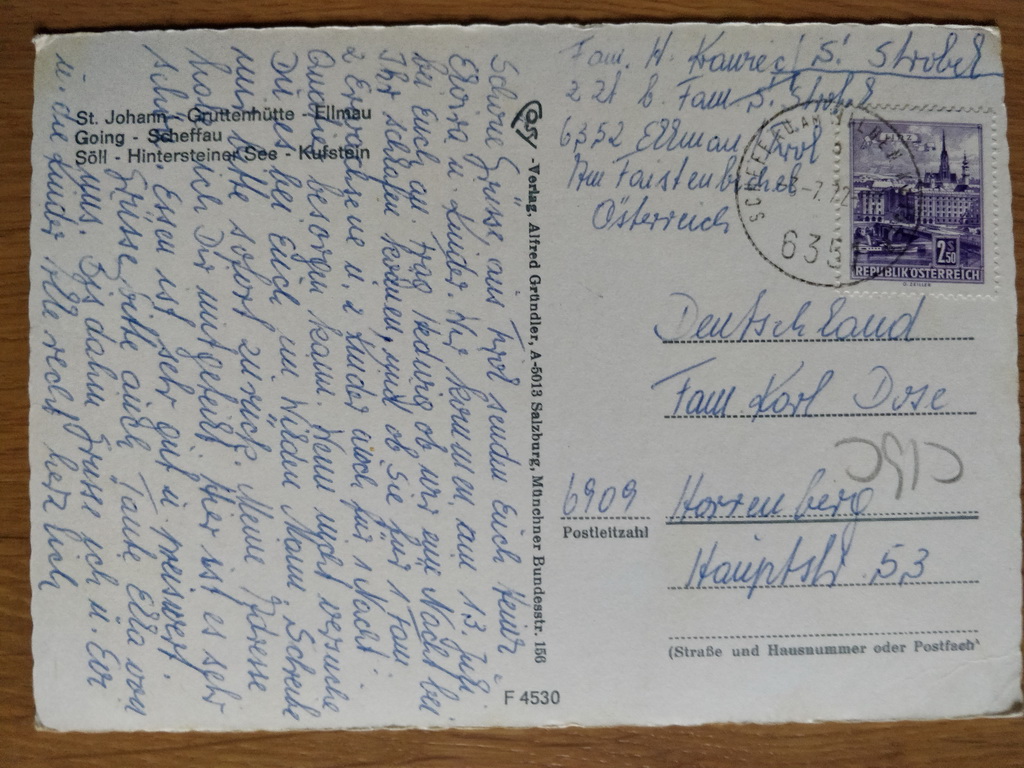 St. Johann - Gruttenhütte - Ellmau
Going - Scheffau
Söll - Hintersteiner See - Kufstein
Schöne Grüsse aus Tirol sendet Euch Heinz
Elvira u. Kinder. Wir kommen am 13. Juli
bei Euch an. Frag Hedwig ob wir eine Nacht bei
Ihr schlafen können, und ob Sie für 1 Fam
2 Erwachsene u. 2 Kinder auch für 1 Nacht
Quartier besorgen kann. Wenn nicht versuche
Du es bei Euch im Wilden Mann. Schreibe
mir bitte sofort zurück. Meine Adresse
habe ich Dir mitgeteilt. Hier ist es sehr
schön. Essen ist sehr gut u. preiswert.
Grüsse bitte auch Tante Ella von
uns. Bis dahin Grüsse ich u. Eur
u. die Kinder alle recht herzlich
-Verlag, Alfred Gründler, A-5013 Salzburg, Münchner Bundesstr. 156
F 4530
Fam. H. / S. Strobel
z Zt b. Fam. S. Strobl
6352 Ellmau Tirol
Am Faistenbichel
Österreich
LINZ
2.50 S
REPUBLIK ÖSTERREICH
635
Deutschland
Fam Karl Dose
6909 Horrenberg
Postleitzahl
Hauptstr 53
(Straße und Hausnummer oder Postfach)